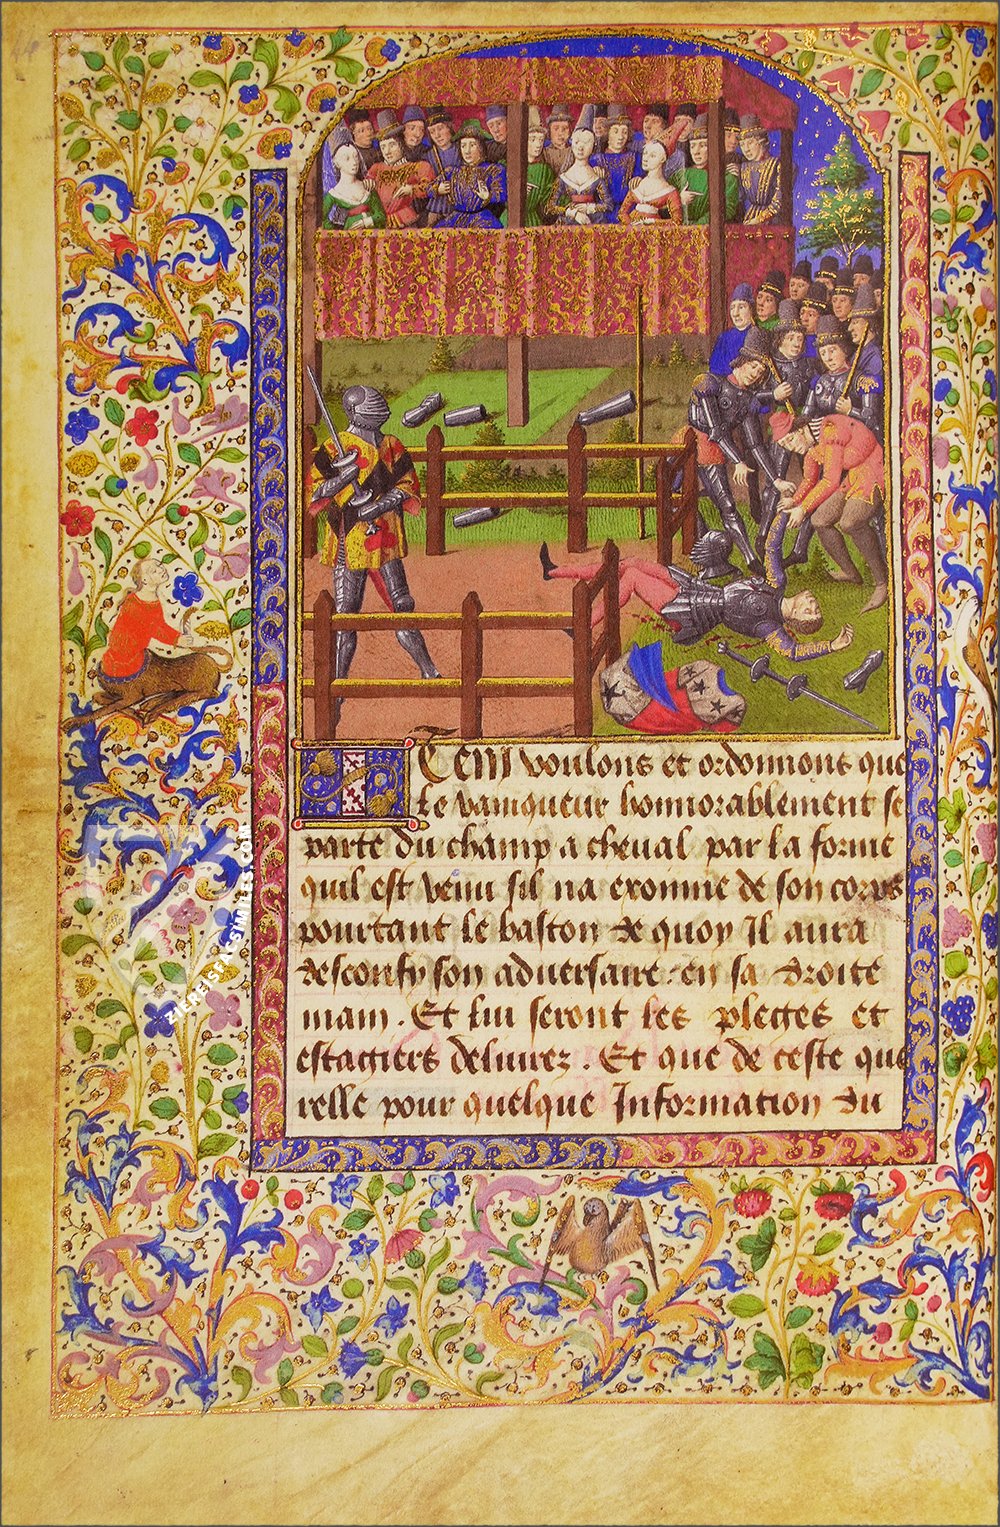 Item voulons et ordonnons que
le vainqueur honnorablement se
parte du champ a cheval par la forme
quil est venu sil na exonnie de son corps
pourtant le baston de quoy Il aura
desconfy son adversaire. en sa droite
main. Et lui seront les pleiges et
estagiers delivrez. Et que de ceste que
relle pour quelque Information du
ZIEREISFACSIMILES.COM